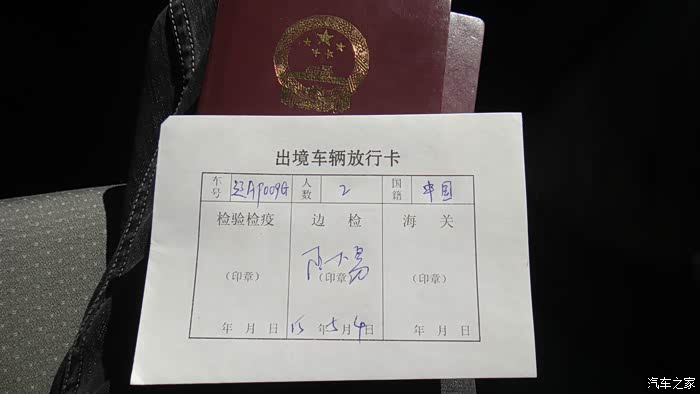 出境车辆放行卡
车号 人数 2 国籍 中国
检验检疫 边检 海关
(印章) (印章) (印章)
年 月 日 15 年 5 月 4 日 年 月 日
汽车之家